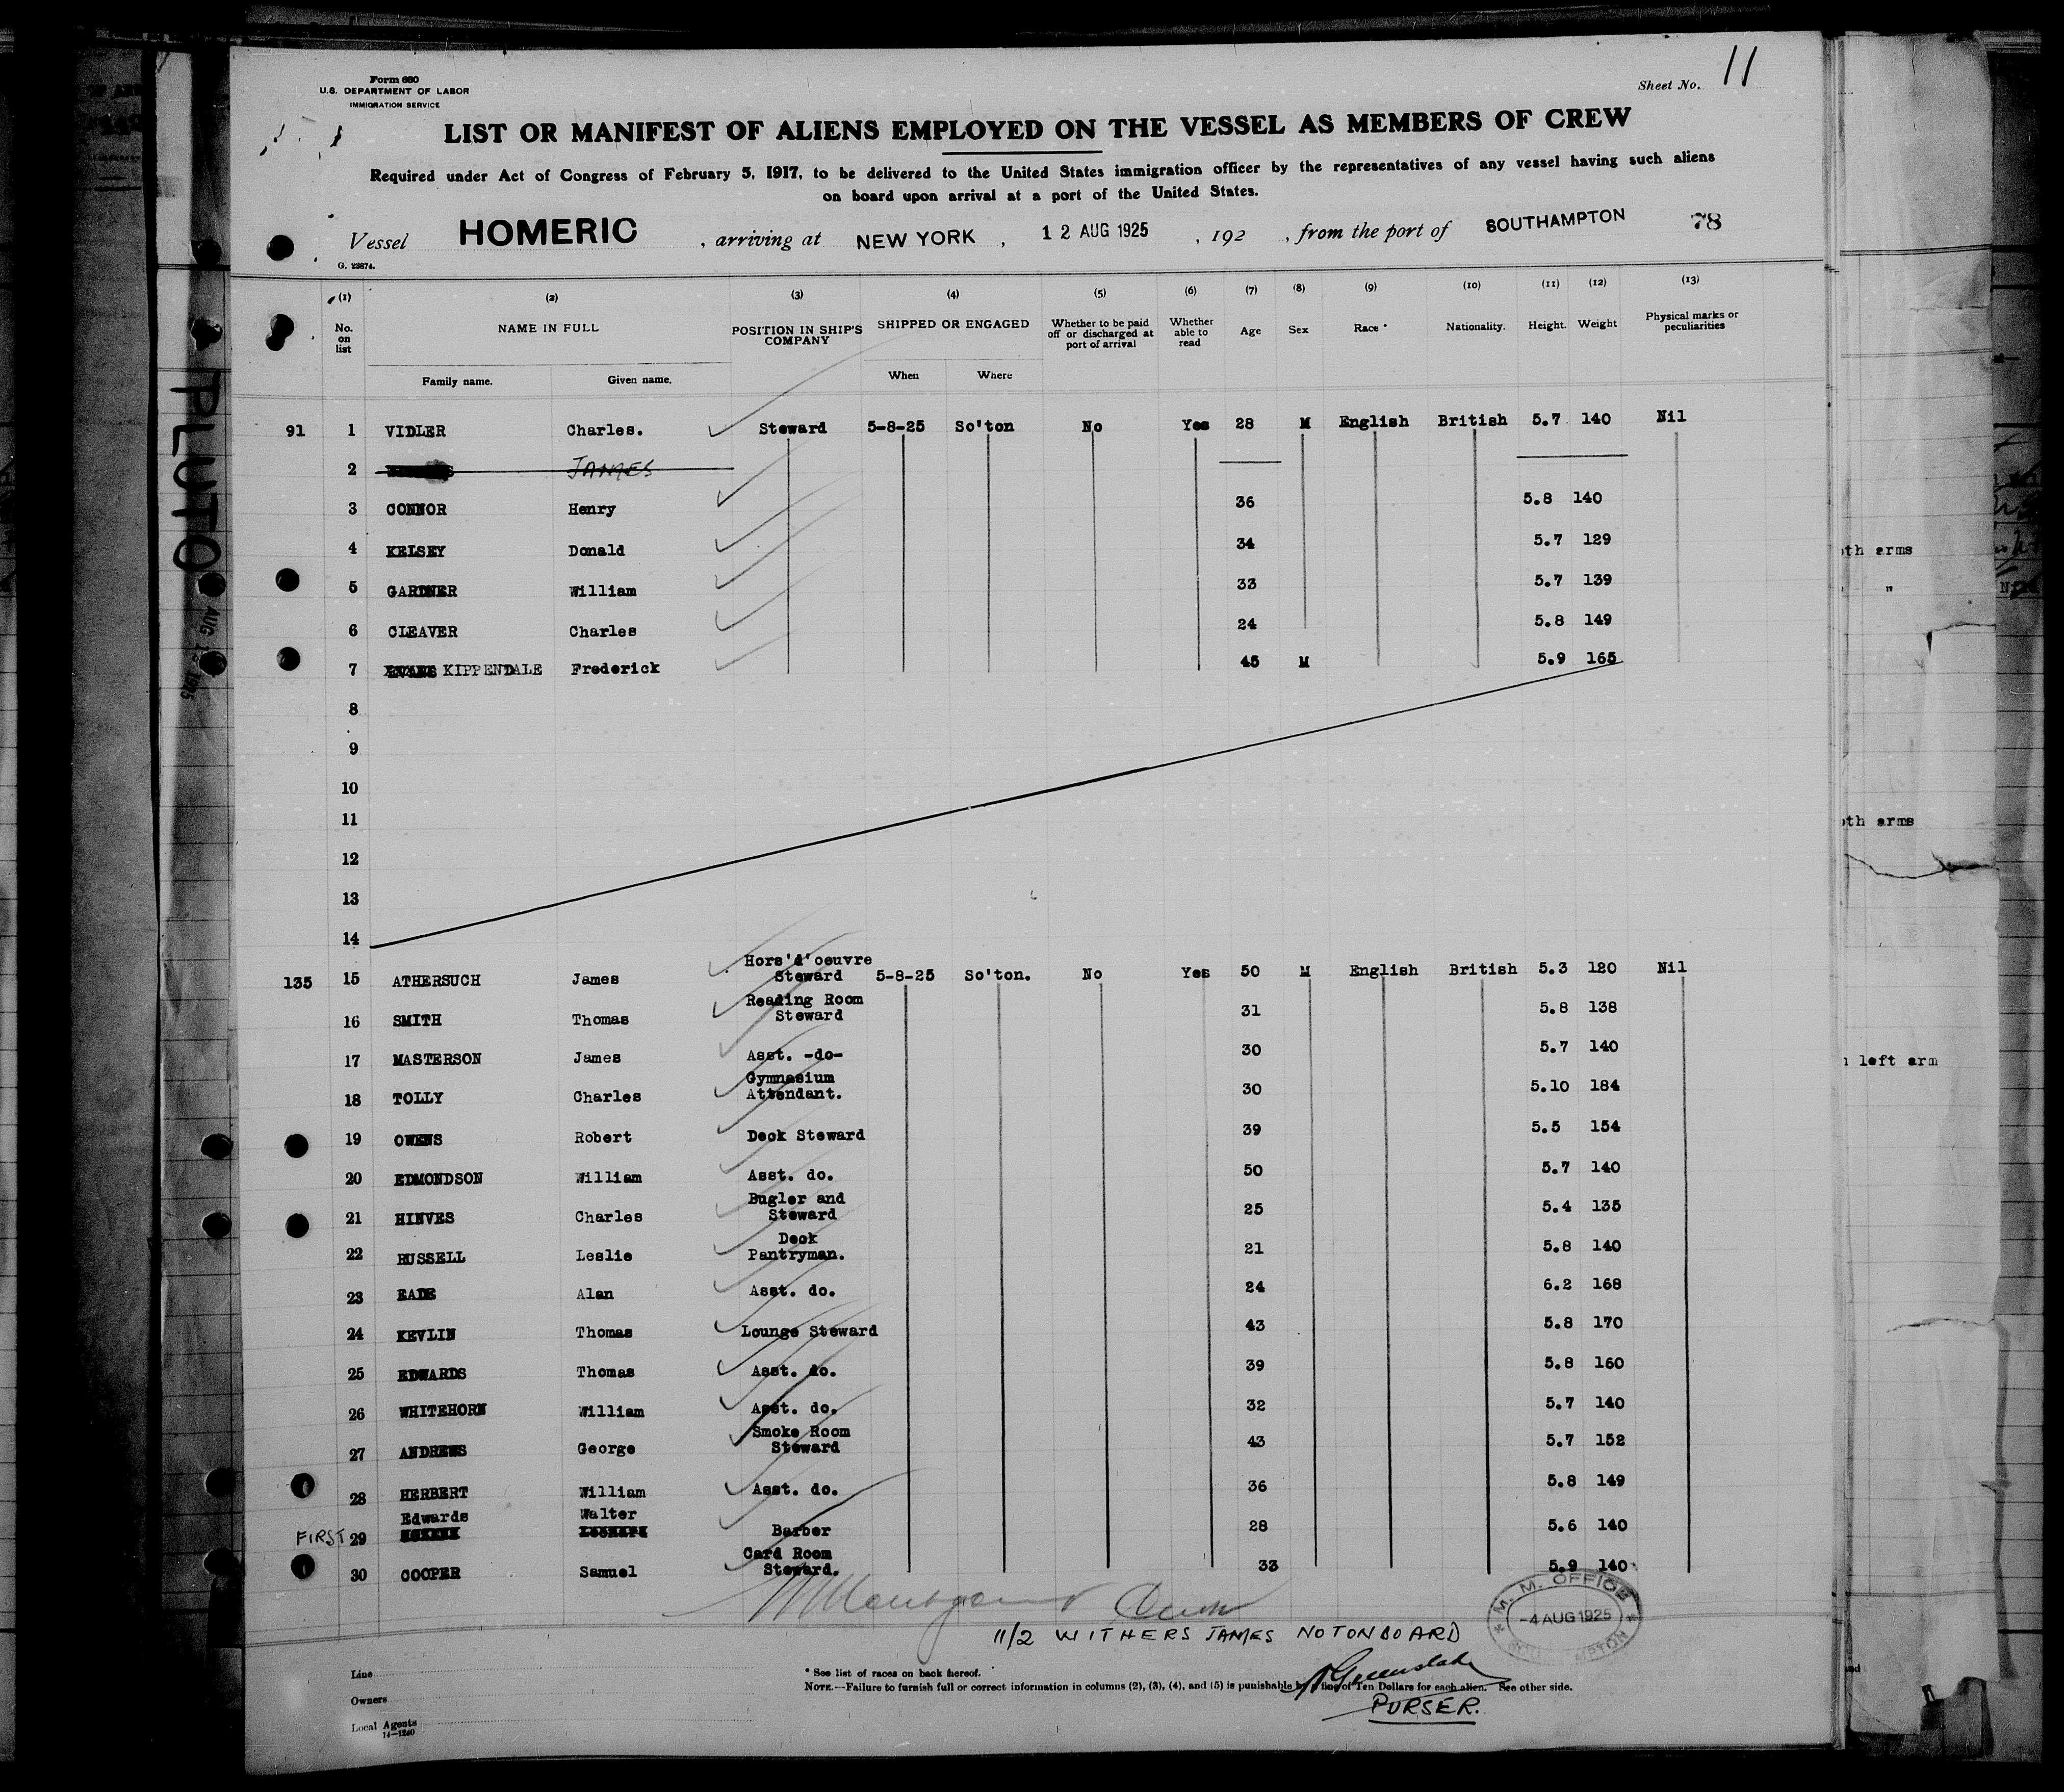 Form 680
U.S. DEPARTMENT OF LABOR
IMMIGRATION SERVICE
Sheet No. 11
LIST OR MANIFEST OF ALIENS EMPLOYED ON THE VESSEL AS MEMBERS OF CREW
Required under Act of Congress of February 5, 1917, to be delivered to the United States immigration officer by the representatives of any vessel having such aliens
on board upon arrival at a port of the United States.
Vessel HOMERIC , arriving at NEW YORK , 12 AUG 1925 , 192 , from the port of SOUTHAMPTON 78
G. 23874.
(1) (2) (3) (4) (5) (6) (7) (8) (9) (10) (11) (12) (13)
No. on list NAME IN FULL POSITION IN SHIP'S COMPANY SHIPPED OR ENGAGED Whether to be paid off or discharged at port of arrival Whether able to read Age Sex Race * Nationality. Height. Weight Physical marks or peculiarities
Family name. Given name. When Where
91 1 VIDLER Charles. Steward 5-8-25 So'ton No Yes 28 M English British 5.7 140 Nil
2 JAMES
3 CONNOR Henry 36 5.8 140
4 KELSEY Donald 34 5.7 129
5 GARDNER William 33 5.7 139
6 CLEAVER Charles 24 5.8 149
7 KIPPENDALE Frederick 45 M 5.9 165
8
9
10
11
12
13
14
135 15 ATHERSUCH James Hors'd'oeuvre Steward 5-8-25 So'ton. No Yes 50 M English British 5.3 120 Nil
16 SMITH Thomas Reading Room Steward 31 5.8 138
17 MASTERSON James Asst. -do- 30 5.7 140
18 TOLLY Charles Gymnasium Attendant. 30 5.10 184
19 OWENS Robert Deck Steward 39 5.5 154
20 EDMONDSON William Asst. do. 50 5.7 140
21 HINVES Charles Bugler and Steward 25 5.4 135
22 RUSSELL Leslie Deck Pantryman. 21 5.8 140
23 EADE Alan Asst. do. 24 6.2 168
24 KEVLIN Thomas Lounge Steward 43 5.8 170
25 EDWARDS Thomas Asst. do. 39 5.8 160
26 WHITEHORN William Asst. do. 32 5.7 140
27 ANDREWS George Smoke Room Steward 43 5.7 152
28 HERBERT William Asst. do. 36 5.8 149
FIRST 29 Edwards Walter Barber 28 5.6 140
30 COOPER Samuel Card Room Steward. 33 5.9 140
M. M. OFFICE
-4 AUG 1925
11/2 WITHERS JAMES NOT ON BOARD
Line
Owners
Local Agents
14-1240
* See list of races on back hereof.
NOTE.—Failure to furnish full or correct information in columns (2), (3), (4), and (5) is punishable by fine of Ten Dollars for each alien. See other side.
PURSER.
PLUTO
oth arms
"
oth arms
left arm